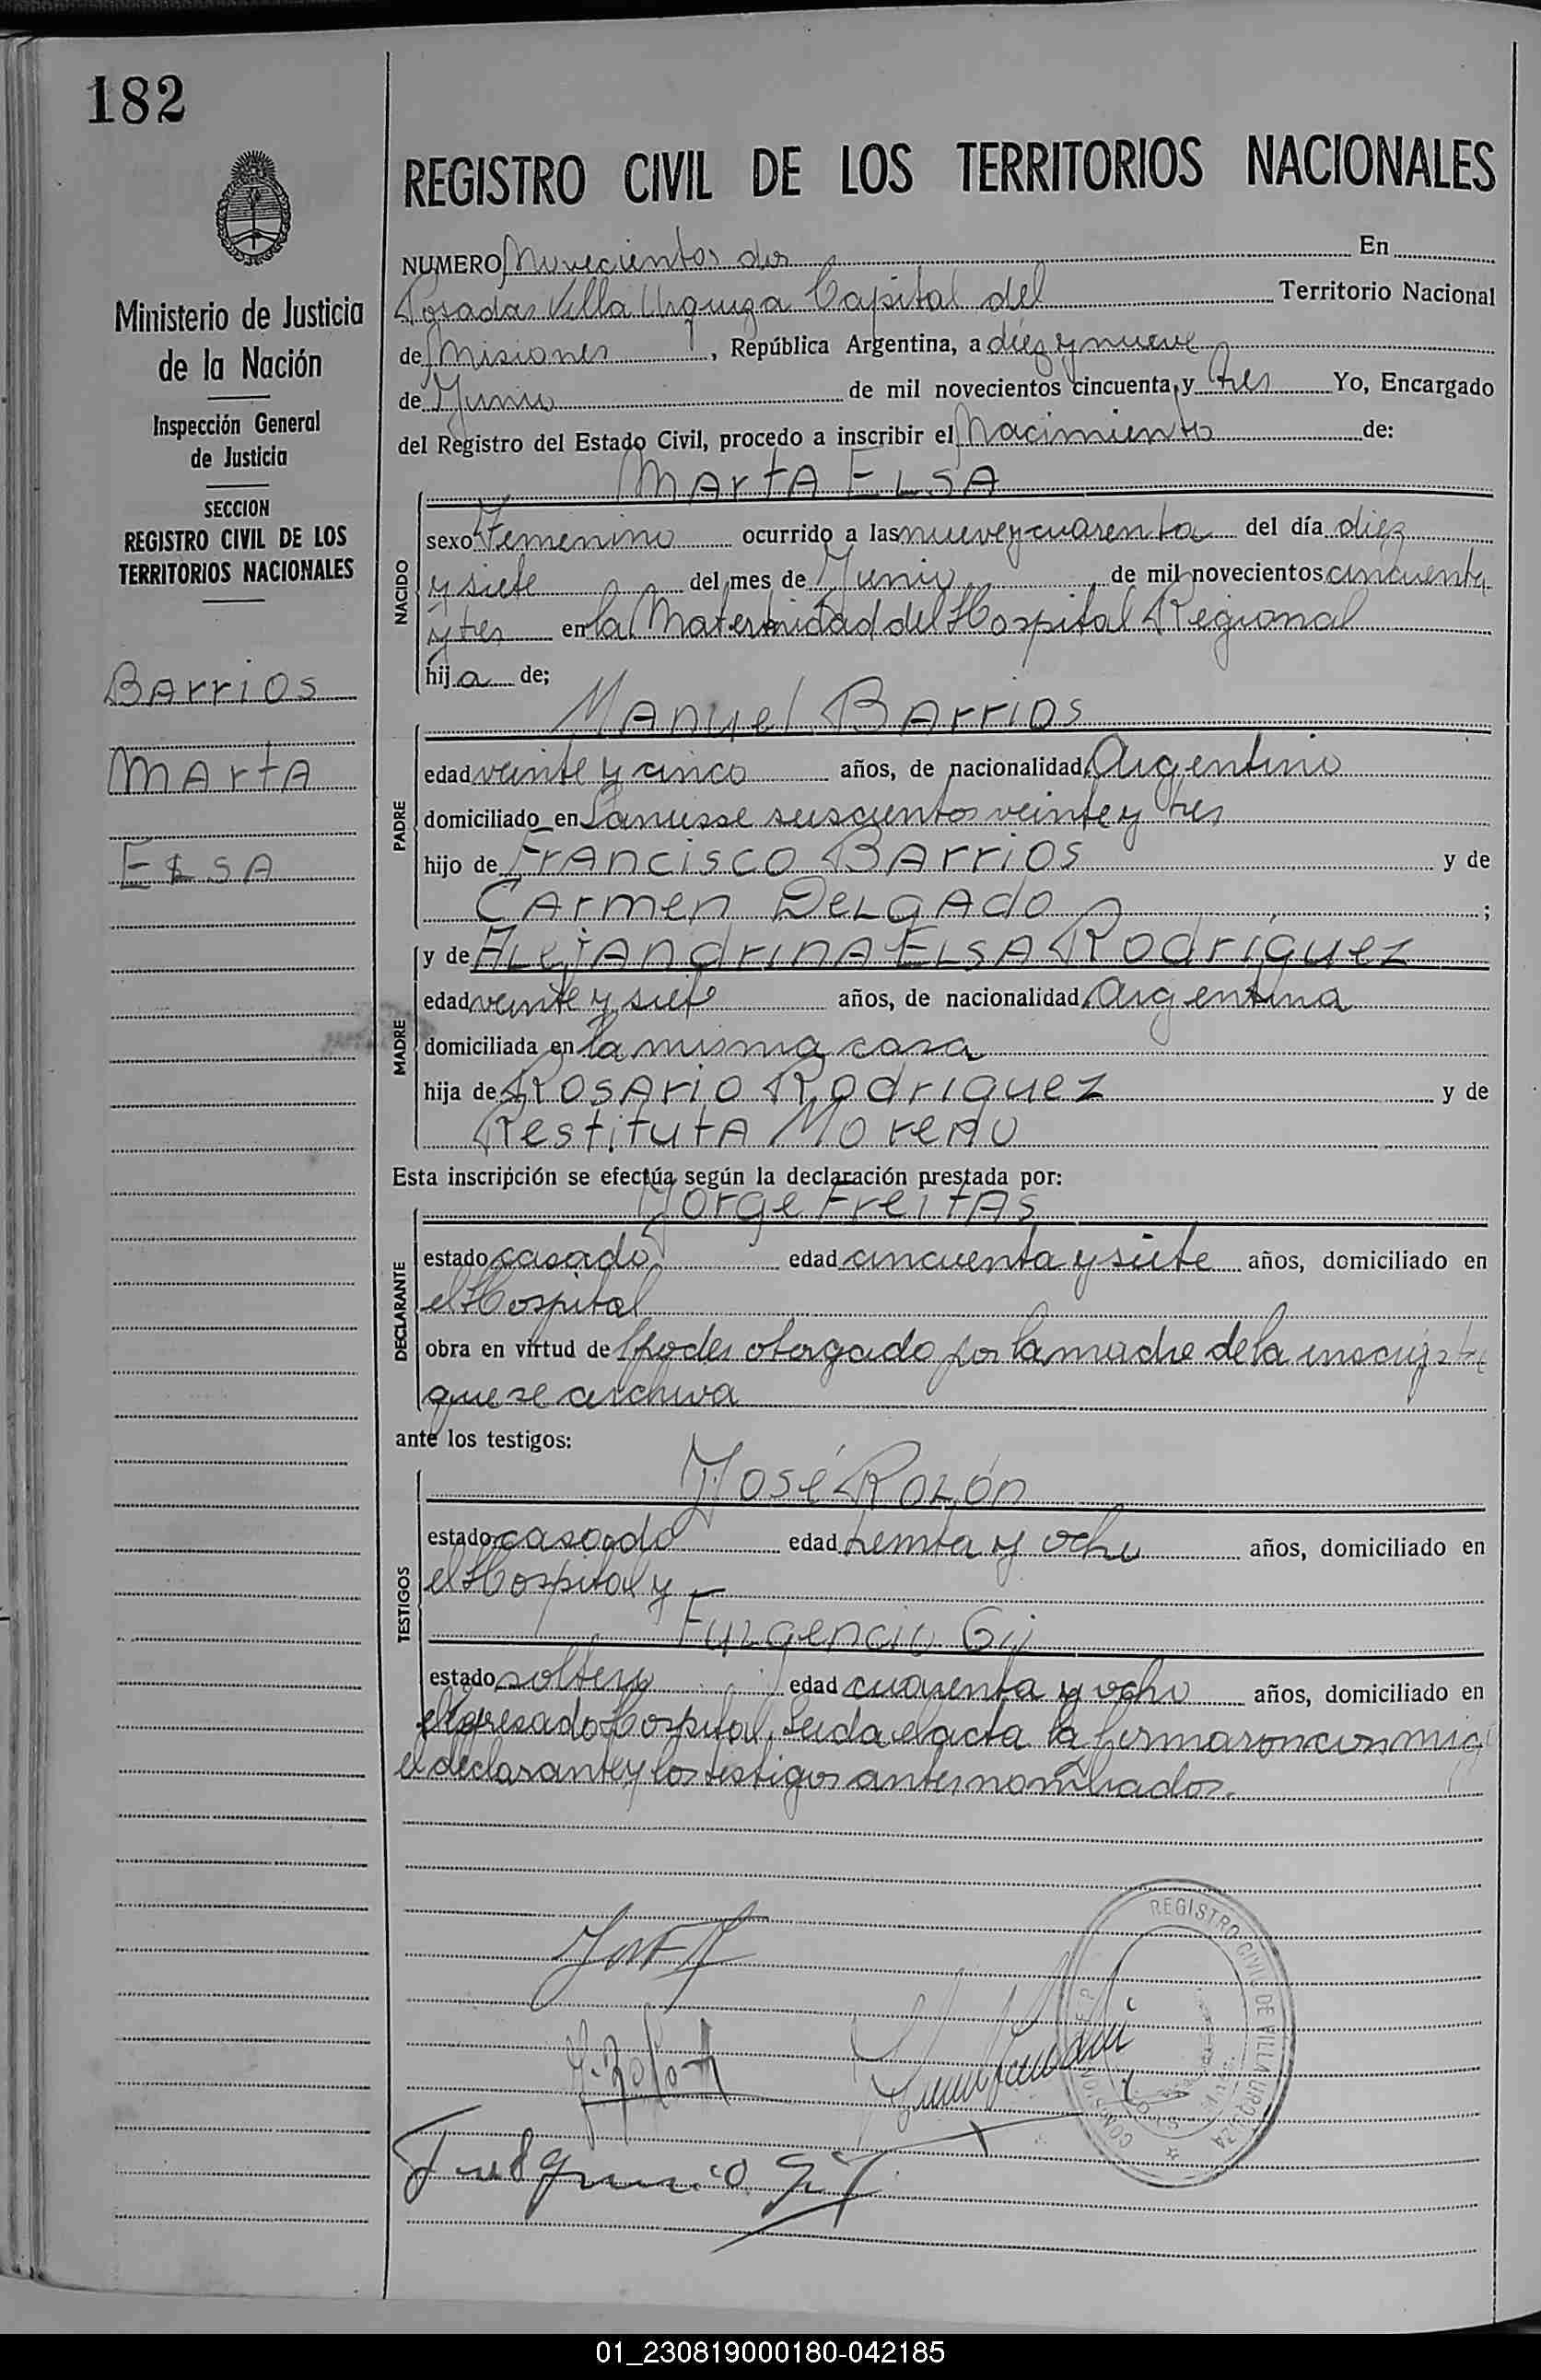 182
Ministerio de Justicia
de la Nación
Inspección General
de Justicia
SECCION
REGISTRO CIVIL DE LOS
TERRITORIOS NACIONALES
Barrios
Marta
Elsa
REGISTRO CIVIL DE LOS TERRITORIOS NACIONALES
NUMERO Novecientos dos En
Posadas Villa Urquiza Capital del Territorio Nacional
de Misiones, República Argentina, a diez y nueve
de Junio de mil novecientos cincuenta y tres Yo, Encargado
del Registro del Estado Civil, procedo a inscribir el Nacimiento de:
Marta Elsa
NACIDO
sexo Femenino ocurrido a las nueve y cuarenta del día diez
y siete del mes de Junio de mil novecientos cincuenta
y tres en la Maternidad del Hospital Regional
hija de;
Manuel Barrios
PADRE
edad veinte y cinco años, de nacionalidad Argentino
domiciliado en Lanusse seiscientos veinte y tres
hijo de Francisco Barrios y de
Carmen Delgado ;
y de Alejandrina Elsa Rodríguez
MADRE
edad veinte y siete años, de nacionalidad Argentina
domiciliada en la misma casa
hija de Rosario Rodriguez y de
Restituta Moreno
Esta inscripción se efectúa según la declaración prestada por:
Jorge Freitas
DECLARANTE
estado casado edad cincuenta y siete años, domiciliado en
el Hospital
obra en virtud de poder otorgado por la madre de la inscripta
que se archiva
ante los testigos:
José Rolón
TESTIGOS
estado casado edad treinta y ocho años, domiciliado en
el Hospital y
Fulgencio Gil
estado soltero edad cuarenta y ocho años, domiciliado en
el Hospital, Leida el acta la firmaron conmigo
el declarante y los testigos antes nombrados.
REGISTRO CIVIL DE VILLA URQUIZA
Fulgencio Gil
01_230819000180-042185